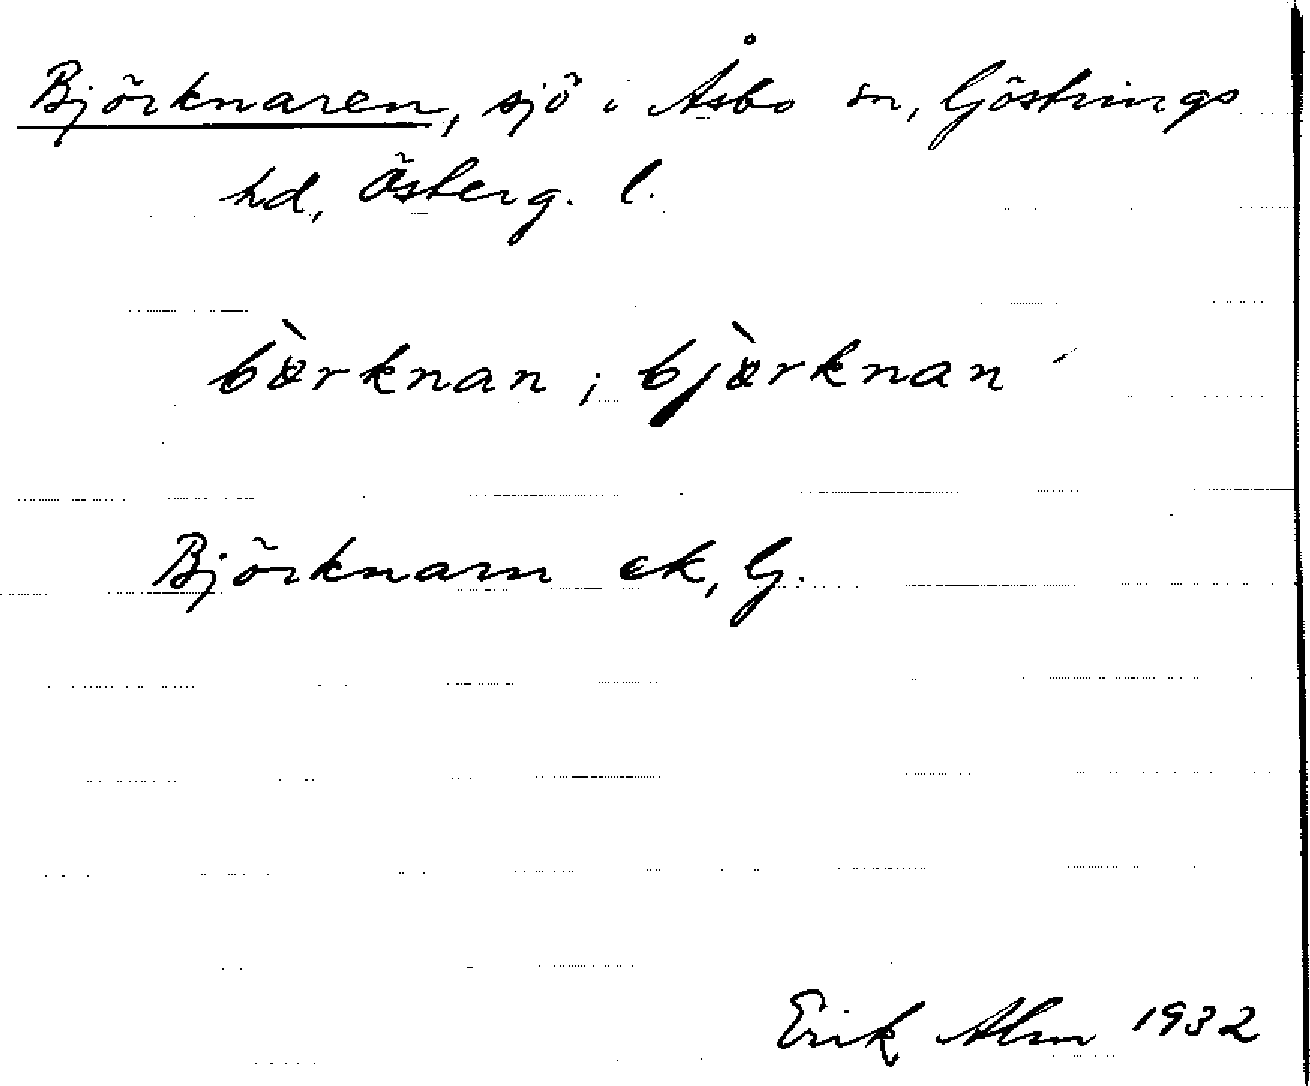 Björknaren, sjö i Åsbo sn, Göstrings
hd, Österg. l.
bæ̀rknan ; bjæ̀rknan
Björknarn ek, G.
Erik Alm 1932